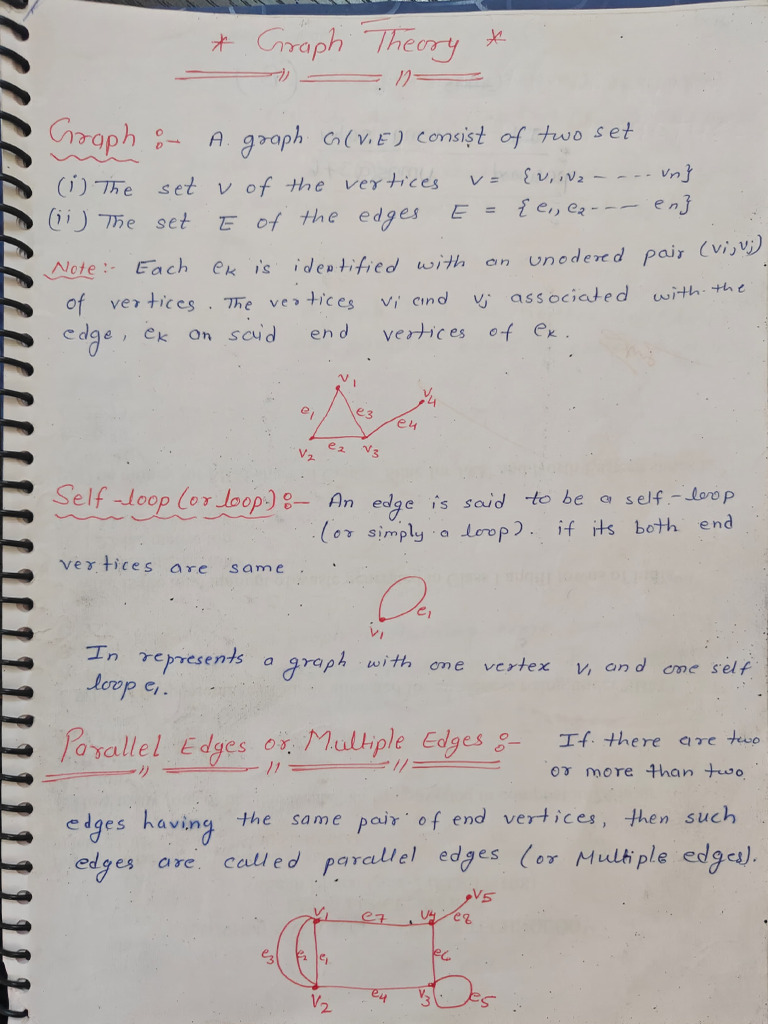 * Graph Theory *
Graph :- A graph G(V,E) consist of two set
(i) The set V of the vertices V = {v1, v2 - - - - - vn}
(ii) The set E of the edges E = {e1, e2 - - - en}
Note :- Each ek is identified with an unodered pair (vi,vj)
of vertices. The vertices vi and vj associated with the
edge, ek an said end vertices of ek.
v1
e1 e3 v4
e4
v2 e2 v3
Self-loop (or loop) :- An edge is said to be a self-loop
(or simply a loop). if its both end
vertices are same.
e1
v1
In represents a graph with one vertex v1 and one self
loop e1.
Parallel Edges or Multiple Edges :- If there are two
or more than two
edges having the same pair of end vertices, then such
edges are called parallel edges (or Multiple edges).
v5
v1 e7 v4 e8
e3 e2 e1 e6
v2 e4 v3 e5